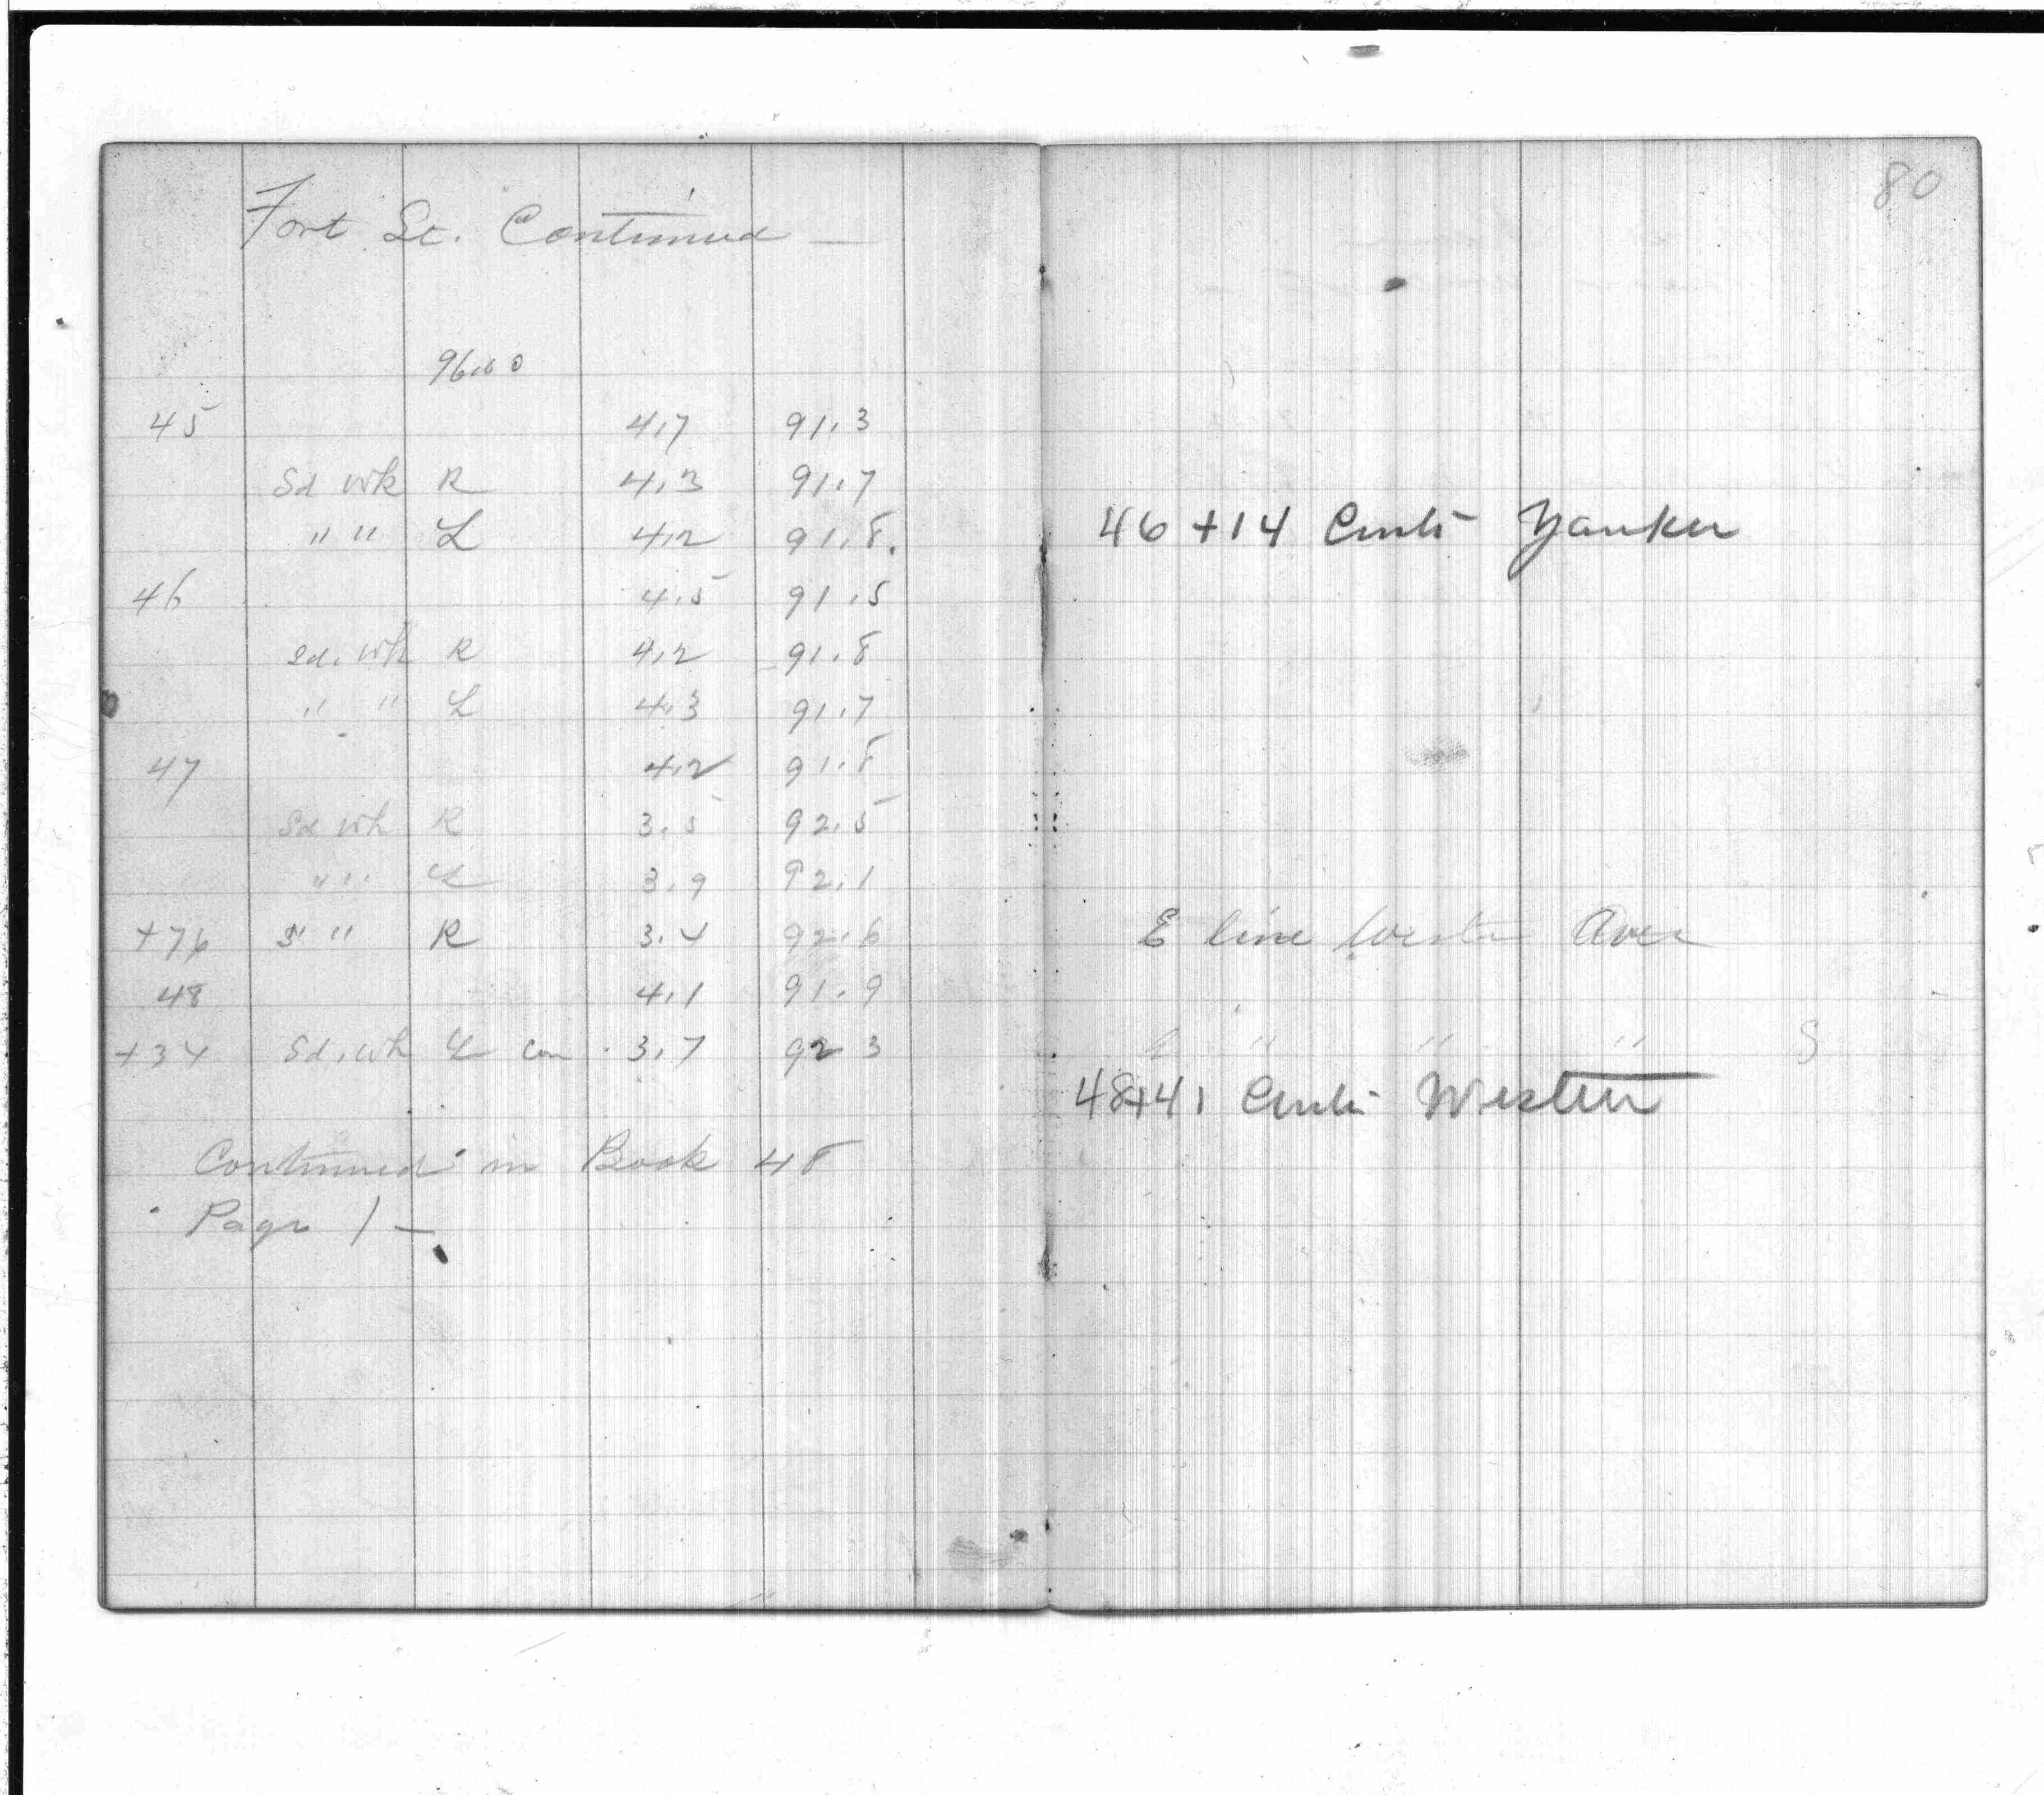 Fort St. Continued —
96.00
45 4.7 91.3
Sd wk R 4.3 91.7
" " L 4.2 91.8.
46 4.5 91.5
Sd. wk R 4.2 91.8
" " L 4.3 91.7
47 4.2 91.8
Sd wk R 3.5 92.5
" " L 3.9 92.1
+76 S " " R 3.4 92.6
48 4.1 91.9
+34 Sd. wk L 3.7 92 3
Continued in Book 48
Page 1 —
80
46 + 14 Yonker
E line Western Ave
" " " S
48+41 Western